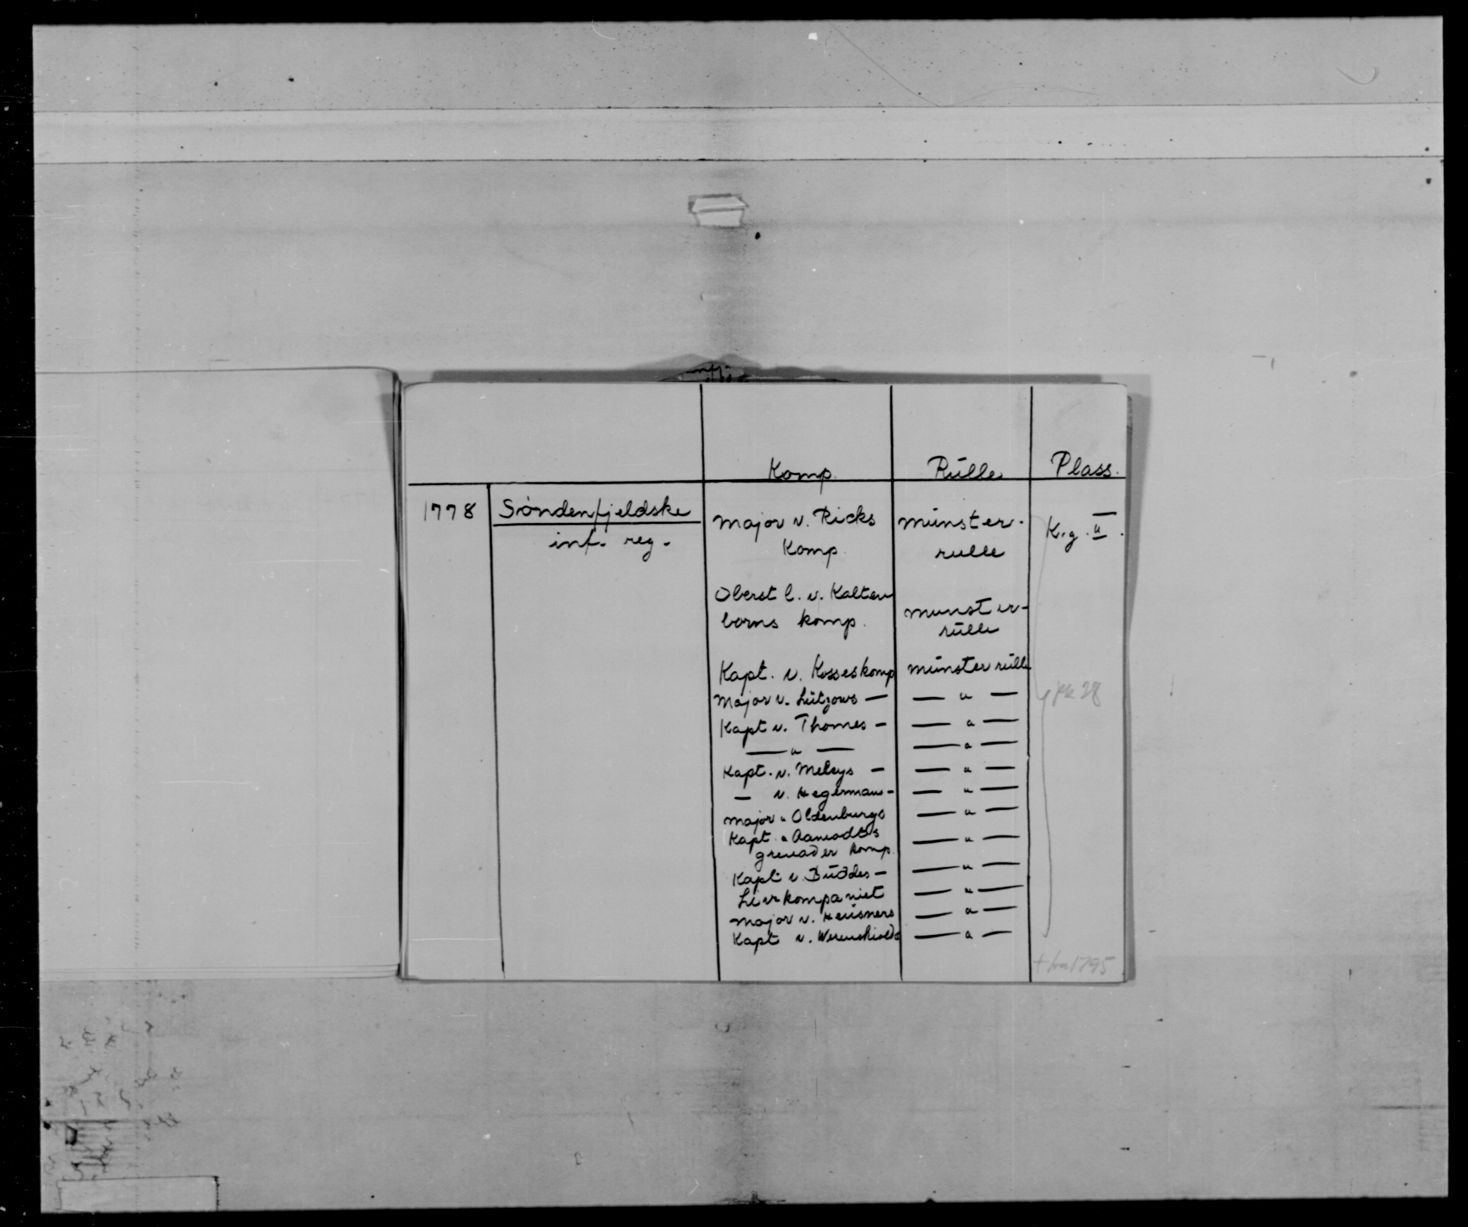 Komp. Rulle Plass.
1778 Søndenfjeldske Major v. Ricks munster- K.g. II.
inf. reg. Komp. rulle
Oberst l. v. Kalten
borns komp. munster-
rulle
Kapt. v. Kosses komp munster rulle
Major v. Lützows — — " — pk 28
Kapt v. Thomes — — " —
— " — — " —
Kapt. v. — — " —
— v. Hegermans — — " —
Major " Oldenburgs — " —
Kapt. " Aamodts — " —
grenader komp.
Kapt v Buddes — — " —
Livkompaniet — " —
Major v. Heusners — " —
Kapt v. Werenskiolds — " —
1795